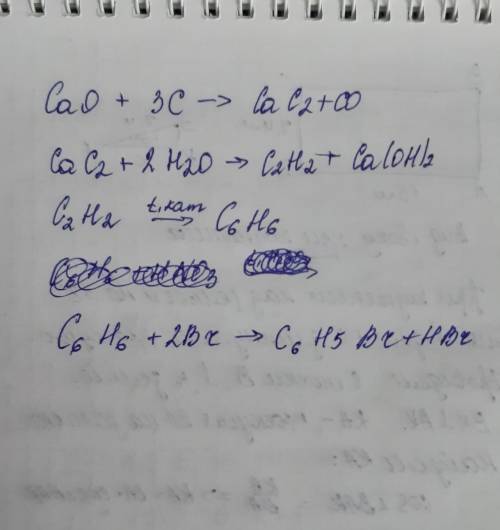 CaO + 3C → CaC2 + CO
CaC2 + 2H2O → C2H2 + Ca(OH)2
C2H2 t,кат → C6H6
C6H6 + 2Br → C6H5Br + HBr